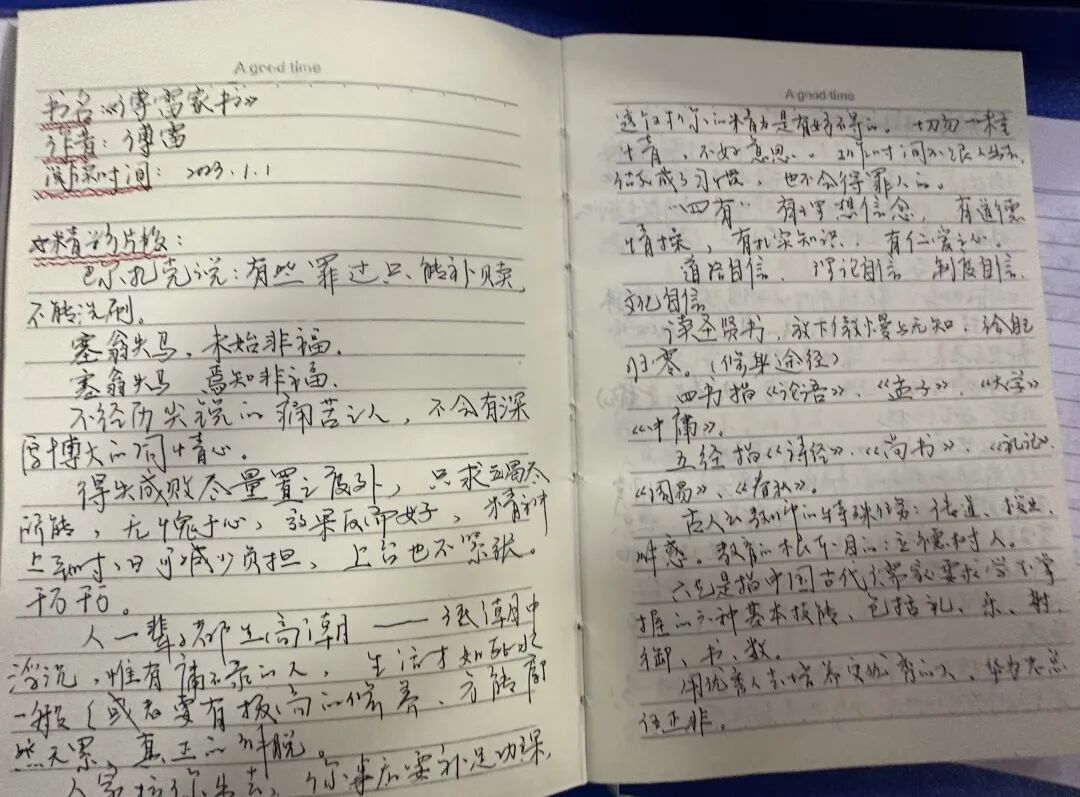 A good time
书名:《傅雷家书》
作者:傅雷
阅读时间:2023.1.1
☆精彩片段:
巴尔扎克说:有些罪过只能补赎,
不能洗刷。
塞翁失马,未始非福。
塞翁失马 焉知非福。
不经历尖锐的痛苦之人,不会有深
厚博大的同情心。
得失成败尽量置之度外,只求竭尽
所能,无愧于心,效果反而好,精神
上平时日可减少负担,上台也不紧张。
千万千万。
人一辈子都在高潮——低潮中
浮沉,惟有庸碌的人,生活才如死水
一般(或者要有极高的修养,方能廓
然无累,真正的解脱。
人家拉你出去,你事后要补足功课,
A good time
这个对你的精力是有妨碍的。切勿一味
情,不好意思。
结成了习惯,也不会得罪人的。
“四有” 有理想信念,有道德
情操,有扎实知识,有仁爱之心。
道路自信、理论自信 制度自信、
文化自信
读圣贤书,放下傲慢与无知,给自己
归零。(修身途径)
四书指《论语》、《孟子》、《大学》
《中庸》。
五经指《诗经》、《尚书》、《礼记》、
《周易》、《春秋》。
古人云教师的特殊任务:传道、授业、
解惑。教育的根本目的:立德树人。
六艺是指中国古代儒家要求学生掌
握的六种基本技能,包括礼、乐、射、
御、书、数。
用优秀人去培养更优秀的人。华为老总
任正非。